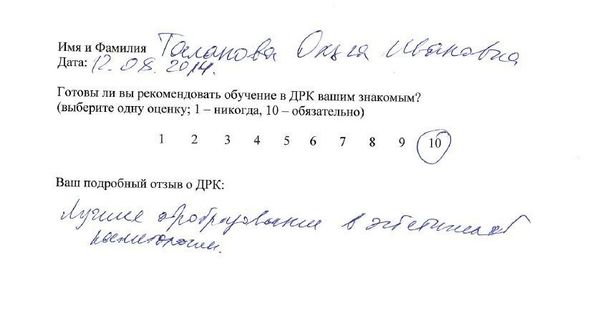 Имя и Фамилия Таланова Ольга Ивановна
Дата: 12.08.2014.
Готовы ли вы рекомендовать обучение в ДРК вашим знакомым?
(выберите одну оценку; 1 – никогда, 10 – обязательно)
1 2 3 4 5 6 7 8 9 10
Ваш подробный отзыв о ДРК:
Лучшее образование в эстетической